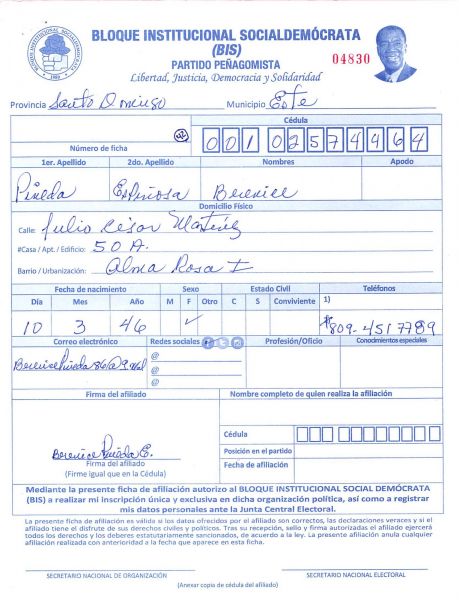 BLOQUE INSTITUCIONAL SOCIALDEMÓCRATA
(BIS)
PARTIDO PEÑAGOMISTA
Libertad, Justicia, Democracia y Solidaridad
04830
BLOQUE INSTITUCIONAL SOCIALDEMOCRATA
Provincia Santo Domingo Municipio Este
Cédula
Número de ficha 001 0257446 4
1er. Apellido 2do. Apellido Nombres Apodo
Pineda Espinosa Berenice
Domicilio Físico
Calle: Julio César Martínez
#Casa / Apt. / Edificio: 50 A.
Barrio / Urbanización: Alma Rosa I
Fecha de nacimiento Sexo Estado Civil Teléfonos
Día Mes Año M F Otro C S Conviviente 1)
10 3 46 ✓ 809-451 7789
Correo electrónico Redes sociales Profesión/Oficio Conocimientos especiales
BerenicePineda86@
@
@
@
Firma del afiliado: Nombre completo de quien realiza la afiliación
Cédula
Berenice Pineda E. Posición en el partido
Firma del afiliado Fecha de afiliación
(Firme igual que en la Cédula)
Mediante la presente ficha de afiliación autorizo al BLOQUE INSTITUCIONAL SOCIAL DEMÓCRATA
(BIS) a realizar mi inscripción única y exclusiva en dicha organización política, así como a registrar
mis datos personales ante la Junta Central Electoral.
La presente ficha de afiliación es válida si los datos ofrecidos por el afiliado son correctos, las declaraciones veraces y si el
afiliado tiene el disfrute de sus derechos civiles y políticos. Tras su recepción, sello y firma autorizadas el afiliado ejercerá
todos los derechos y los deberes estatutariamente sancionados, de acuerdo a la ley. La presente afiliación anula cualquier
afiliación realizada con anterioridad a la fecha que aparece en esta ficha.
SECRETARIO NACIONAL DE ORGANIZACIÓN SECRETARIO NACIONAL ELECTORAL
(Anexar copia de cédula del afiliado)